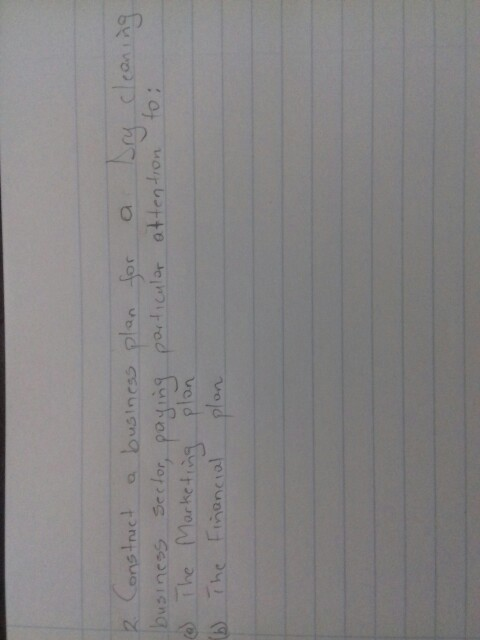 2. Construct a business plan for a Dry cleaning
business sector, paying particular attention to:
(a) The Marketing plan
(b) The Financial plan